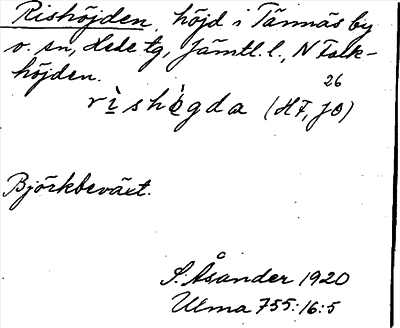 Rishöjden, höjd i Tännäs by
o. sn, Hede tg, Jämtl. l., N Falk-
höjden.
26
rìshègda (HF, JO)
Björkbeväxt.
S. Åsander 1920
Ulma 755:16:5